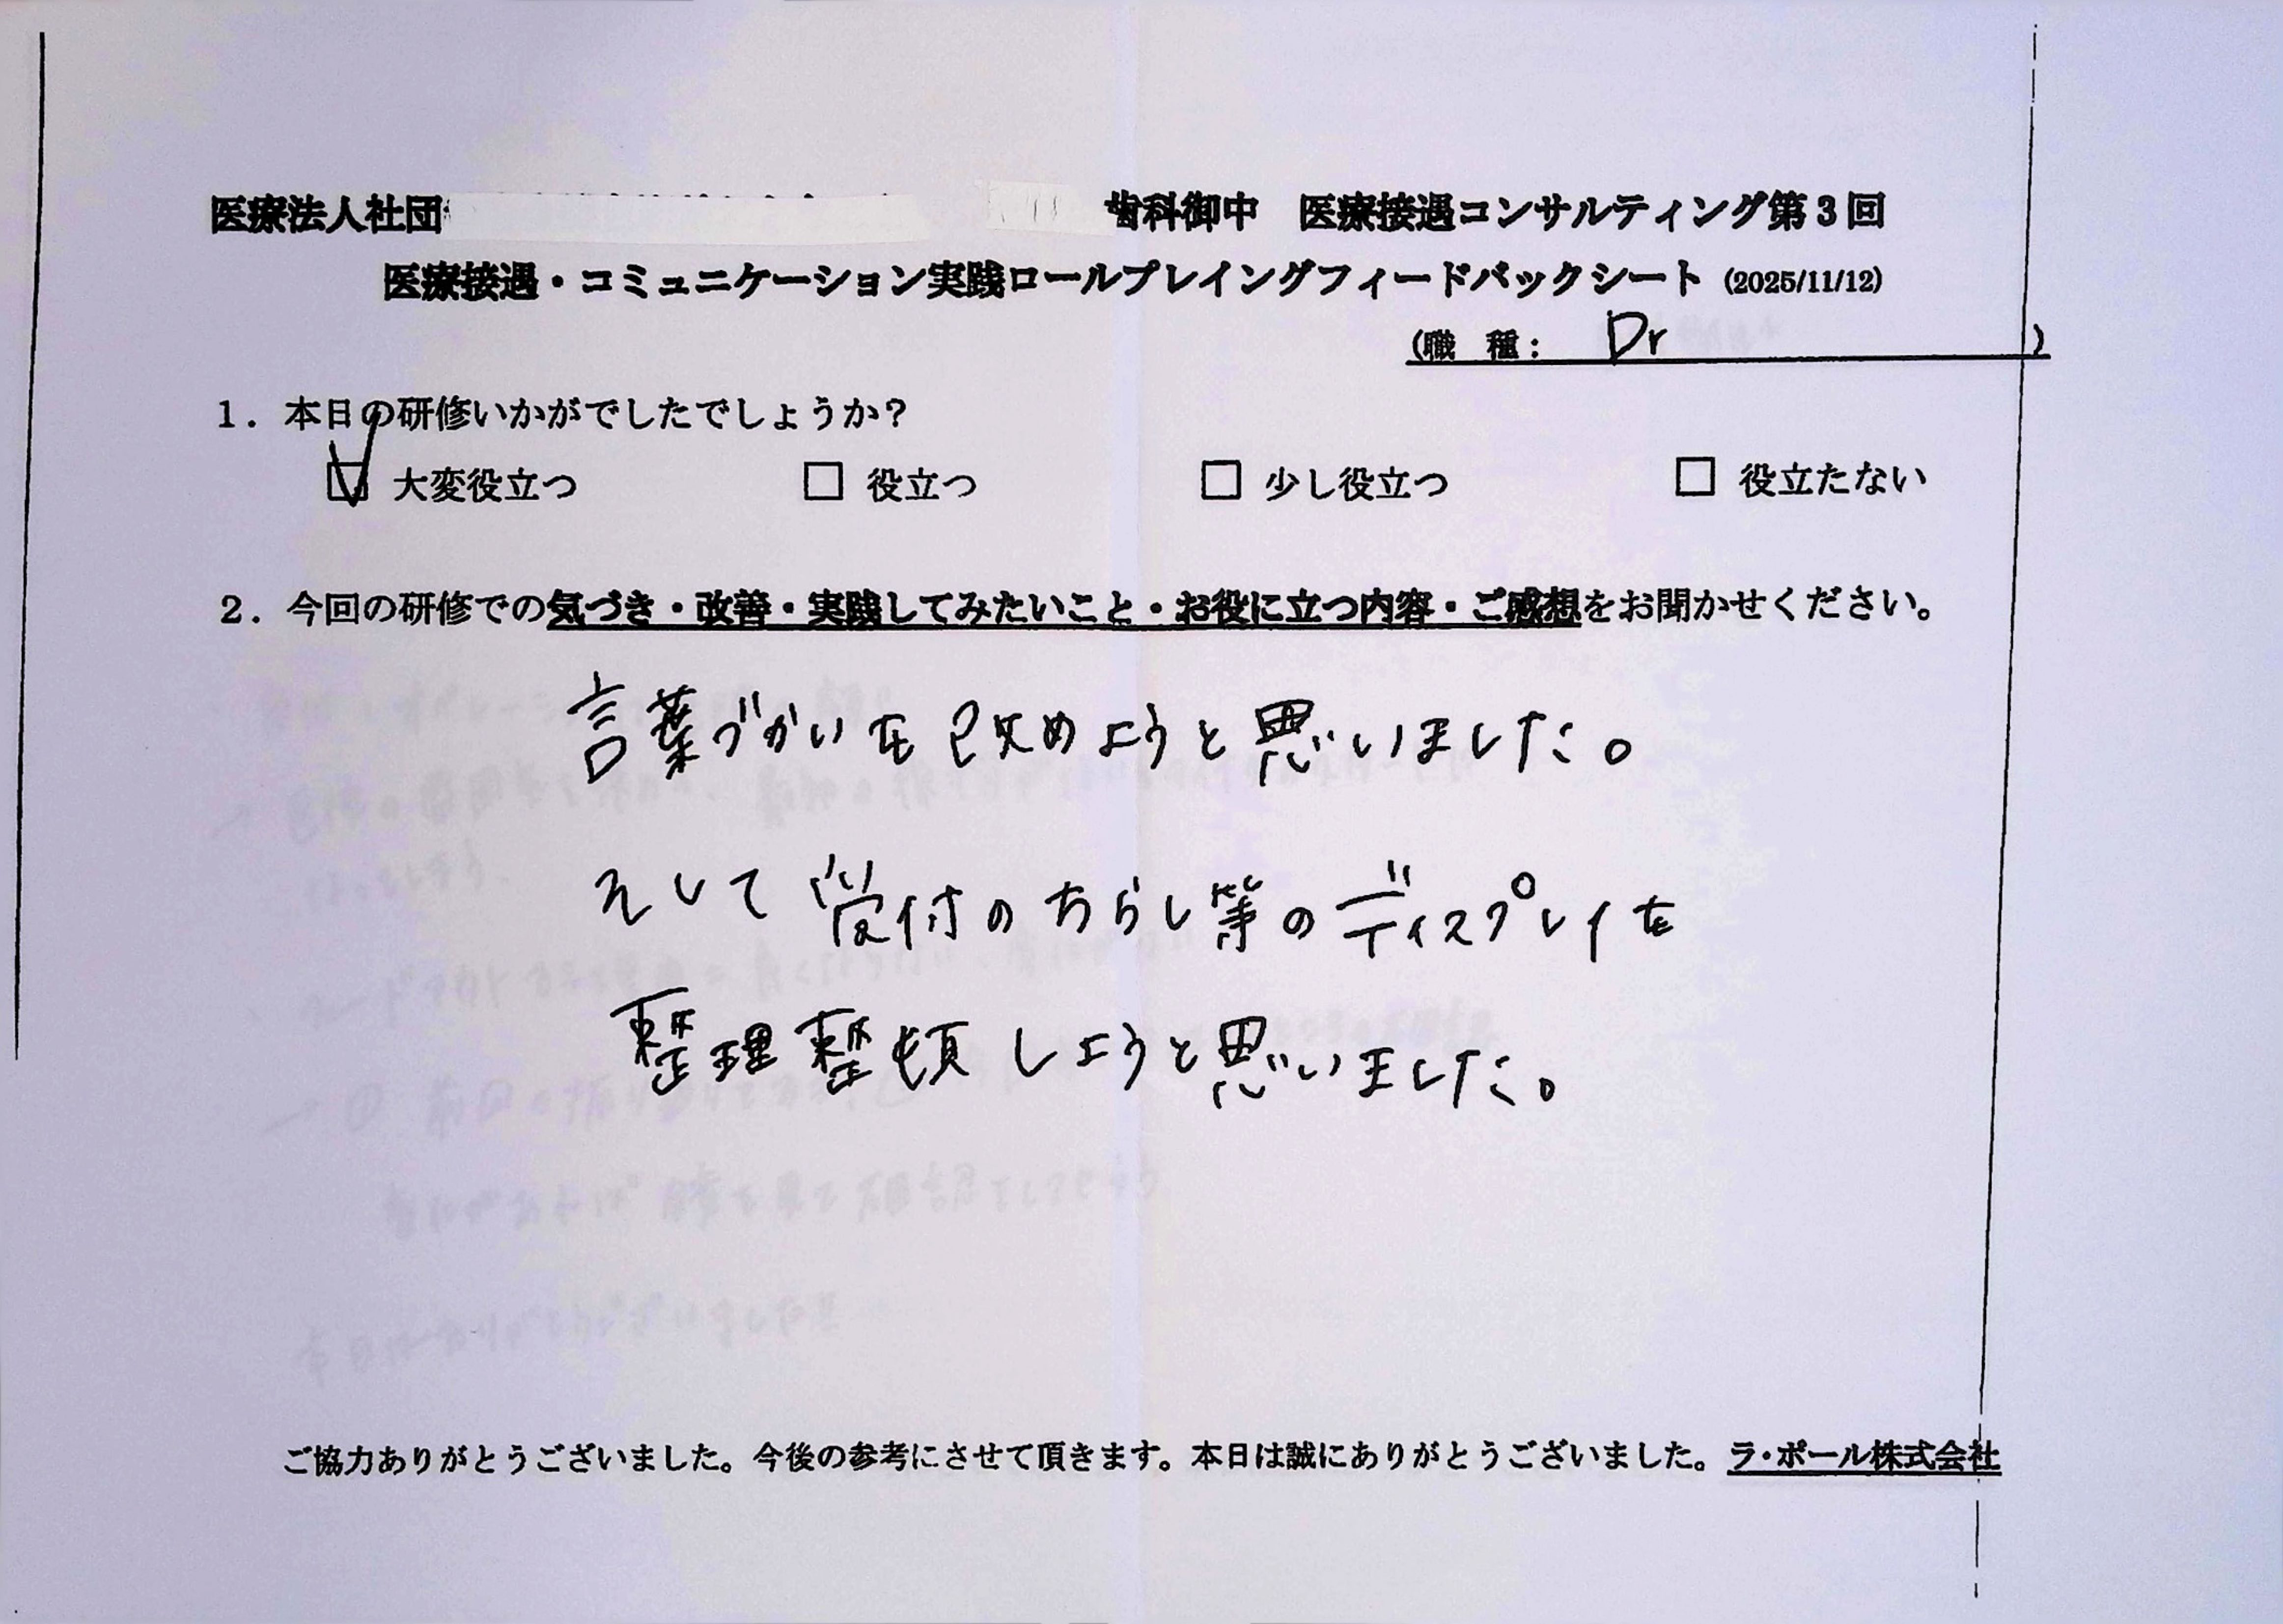 医療法人社団 歯科御中 医療接遇コンサルティング第3回
医療接遇・コミュニケーション実践ロールプレイングフィードバックシート (2025/11/12)
(職 種: Dr )
1. 本日の研修いかがでしたでしょうか?
☑ 大変役立つ □ 役立つ □ 少し役立つ □ 役立たない
2. 今回の研修での気づき・改善・実践してみたいこと・お役に立つ内容・ご感想をお聞かせください。
言葉づかいを改めようと思いました。
そして受付のちらし等のディスプレイを
整理整頓しようと思いました。
ご協力ありがとうございました。今後の参考にさせて頂きます。本日は誠にありがとうございました。ラ・ポール株式会社